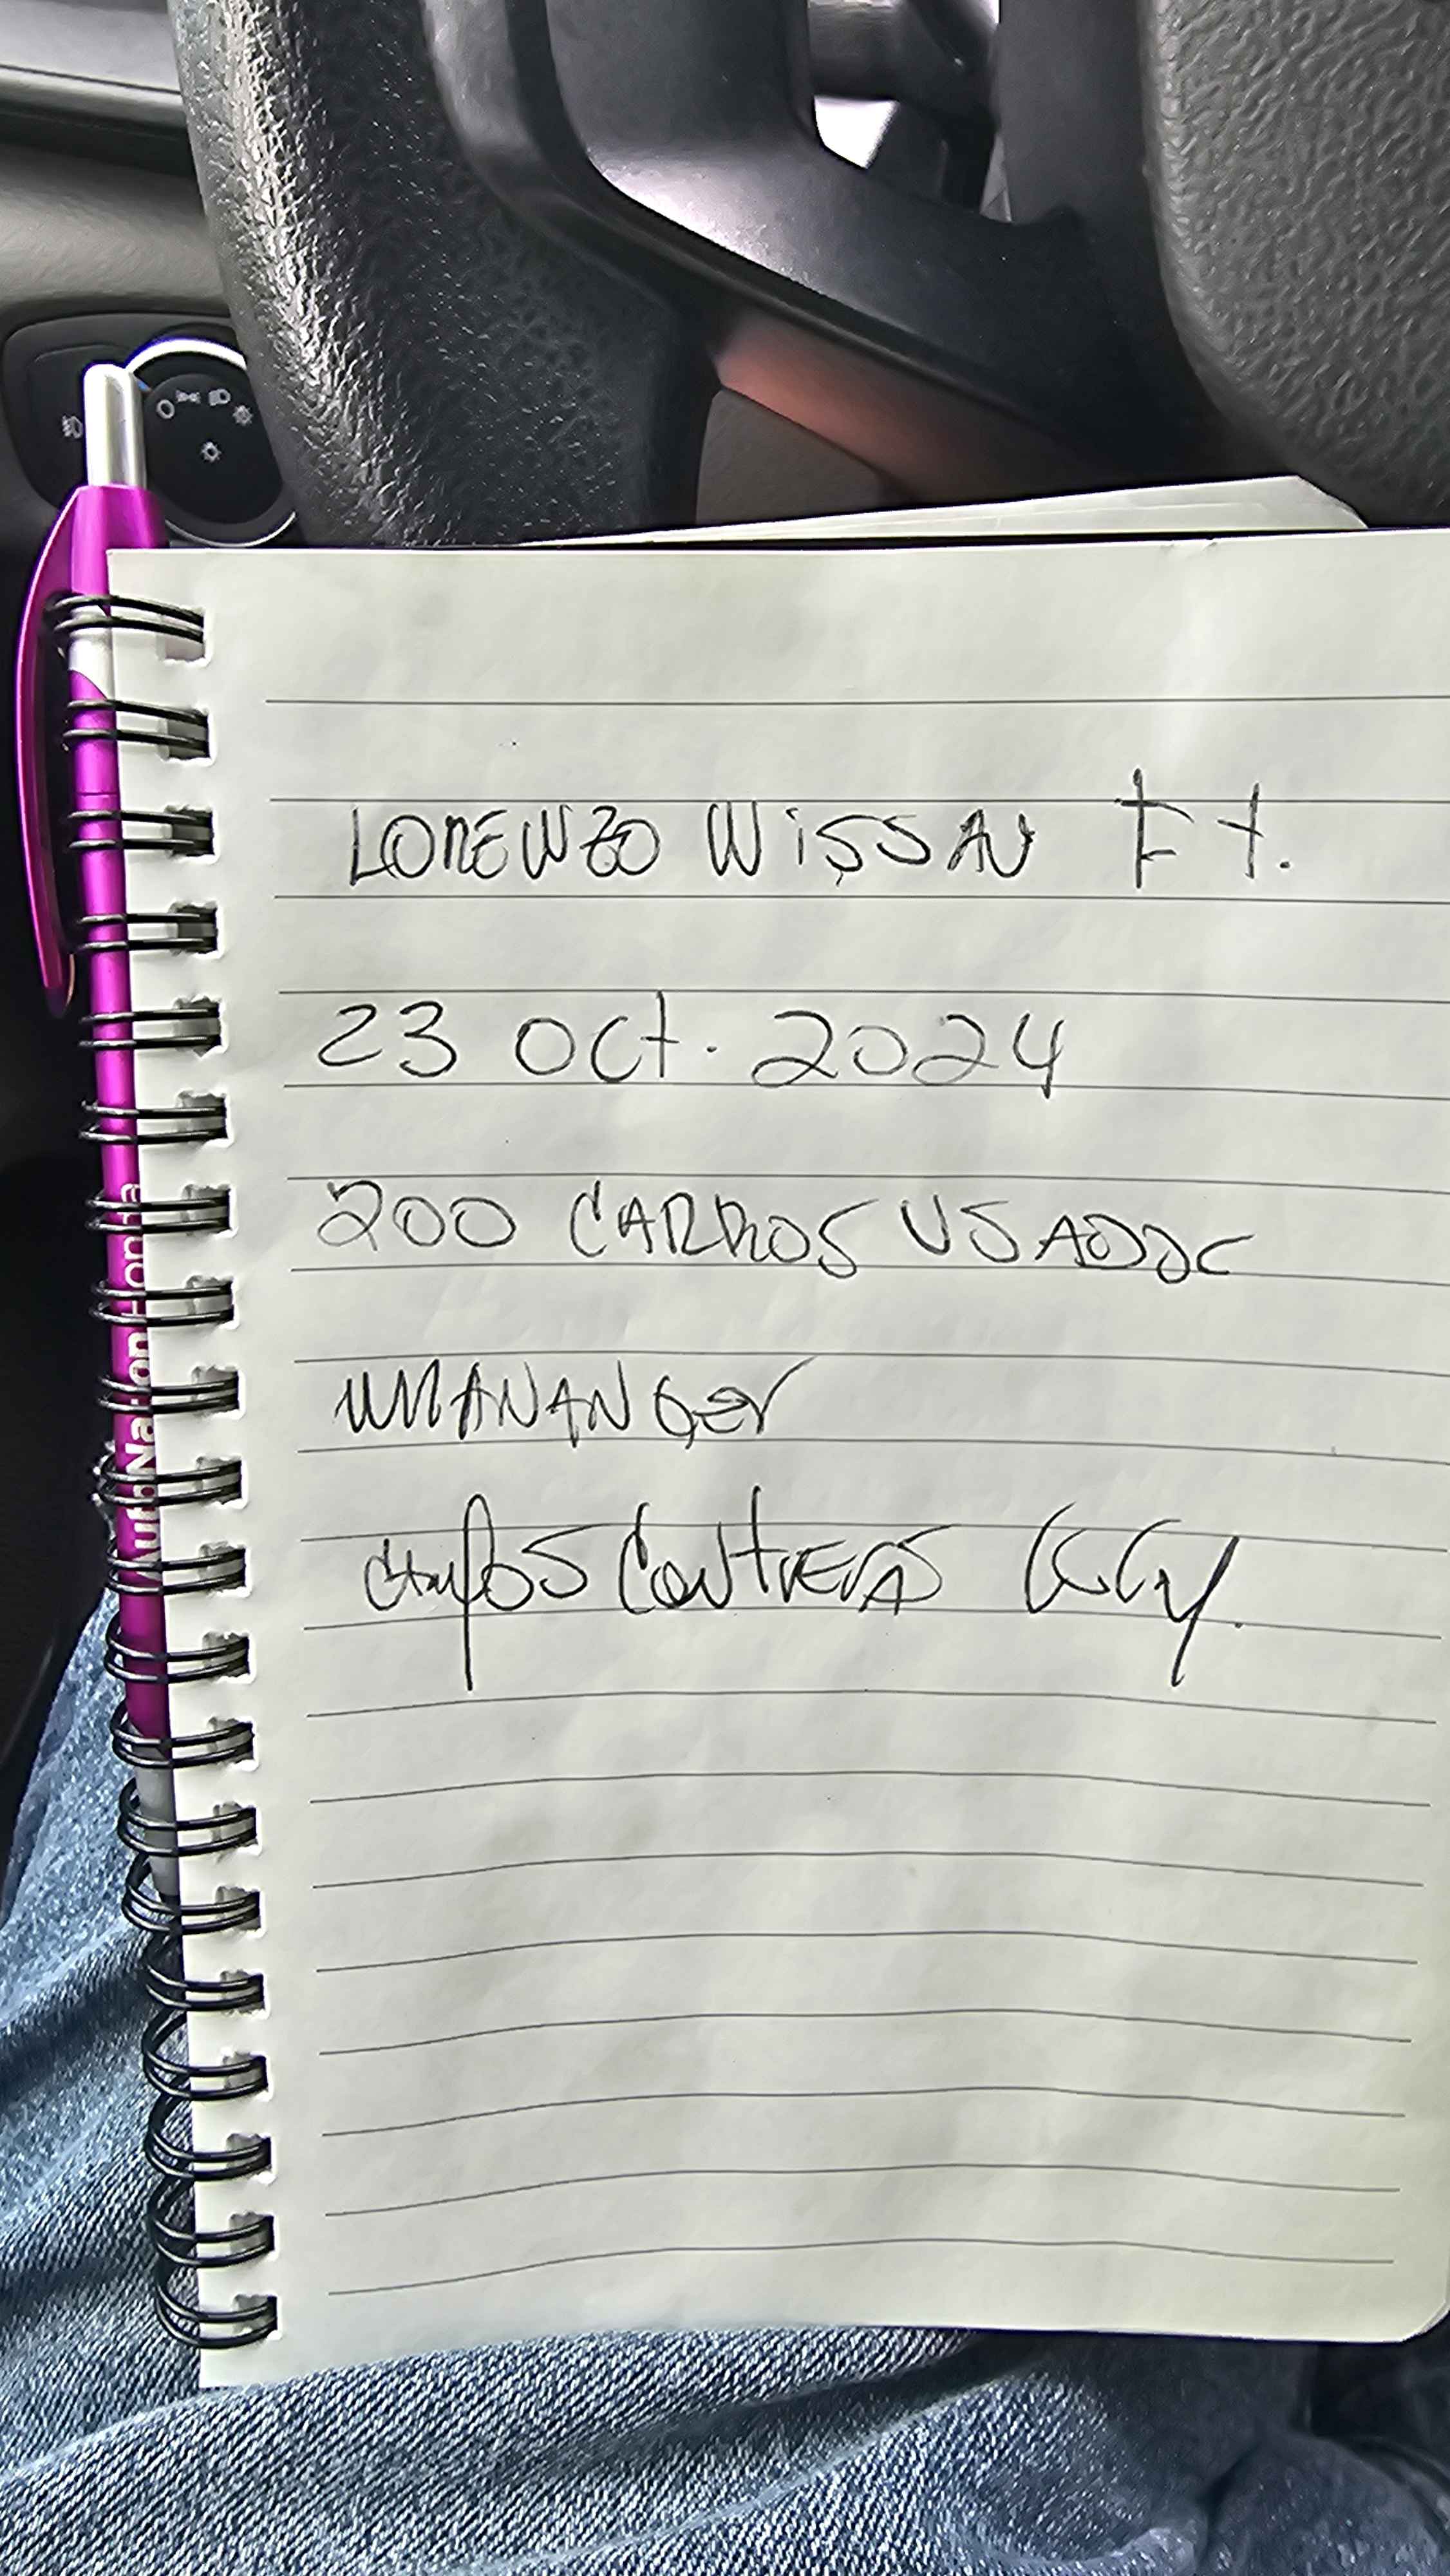 LORENZO NISSAN Ft.
23 Oct. 2024
200 CARROS USADOS
MANANGER
CARLOS CONTRERAS
AutoNation Honda